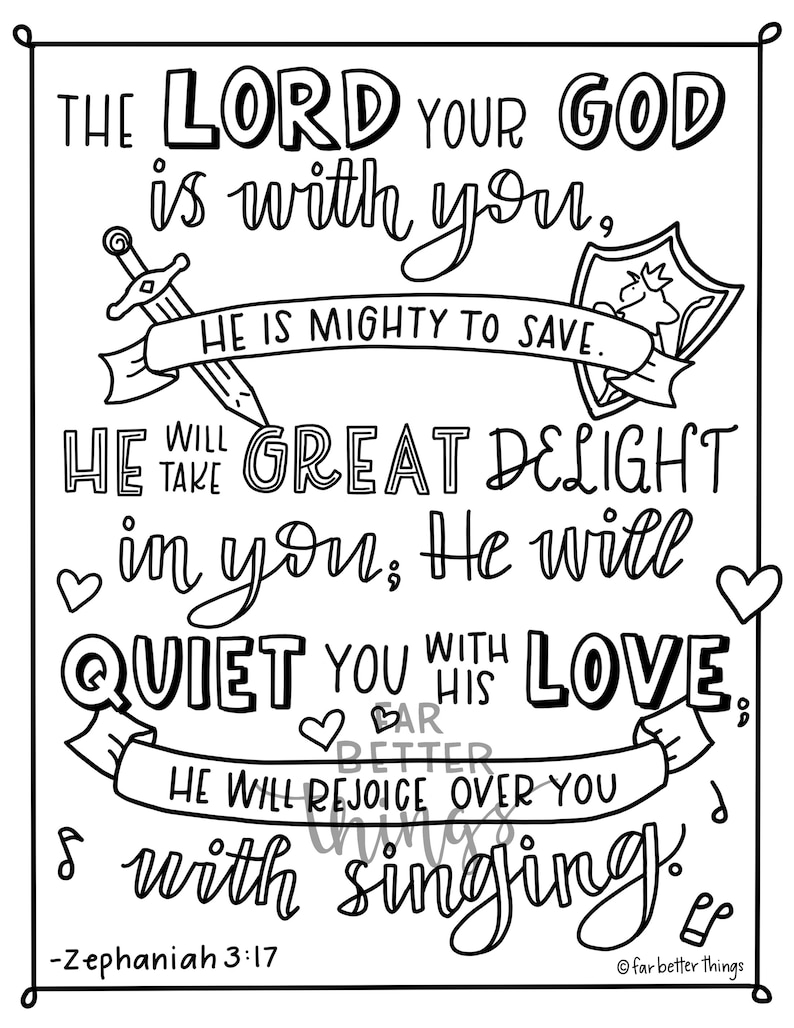 THE LORD YOUR GOD
is with you,
HE IS MIGHTY TO SAVE.
HE WILL TAKE GREAT DELIGHT
in you; He will
QUIET YOU WITH HIS LOVE;
FAR
BETTER
things
HE WILL REJOICE OVER YOU
with singing.
-Zephaniah 3:17
©far better things